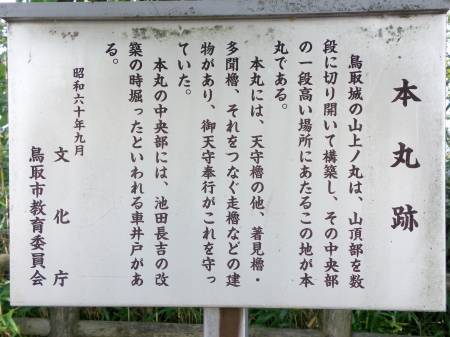 本丸跡
鳥取城の山上ノ丸は、山頂部を数
段に切り開いて構築し、その中央部
の一段高い場所にあたるこの地が本
丸である。
本丸には、天守櫓の他、著見櫓・
多聞櫓、それをつなぐ走櫓などの建
物があり、御天守奉行がこれを守っ
ていた。
本丸の中央部には、池田長吉の改
築の時堀ったといわれる車井戸があ
る。
昭和六十年九月
文化庁
鳥取市教育委員会